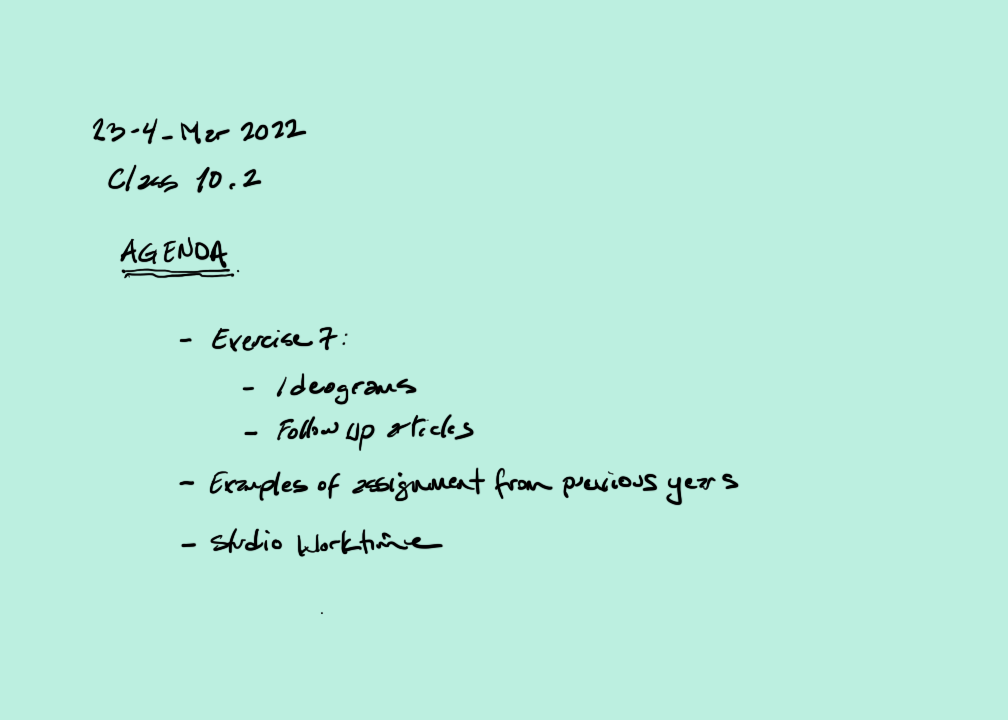 23-4-Mar 2022
Class 10.2
AGENDA
- Exercise 7:
- Ideograms
- Follow up articles
- Examples of assignment from previous years
- Studio Worktime